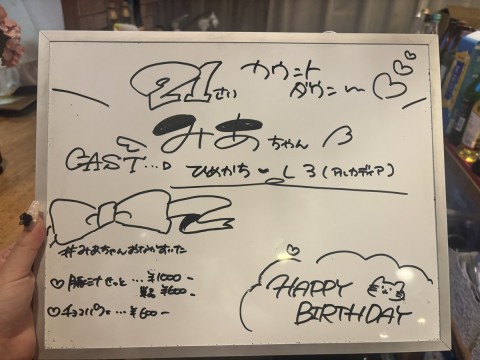 21さい カウントダウン〜♡
みあちゃん
CAST... ひめかち♥ しろ(アルカディア)
#みあちゃんおなかすいた
♡豚汁セット…¥1000-
単品 ¥600-
♡チョコバナナ…¥600-
HAPPY
BIRTHDAY